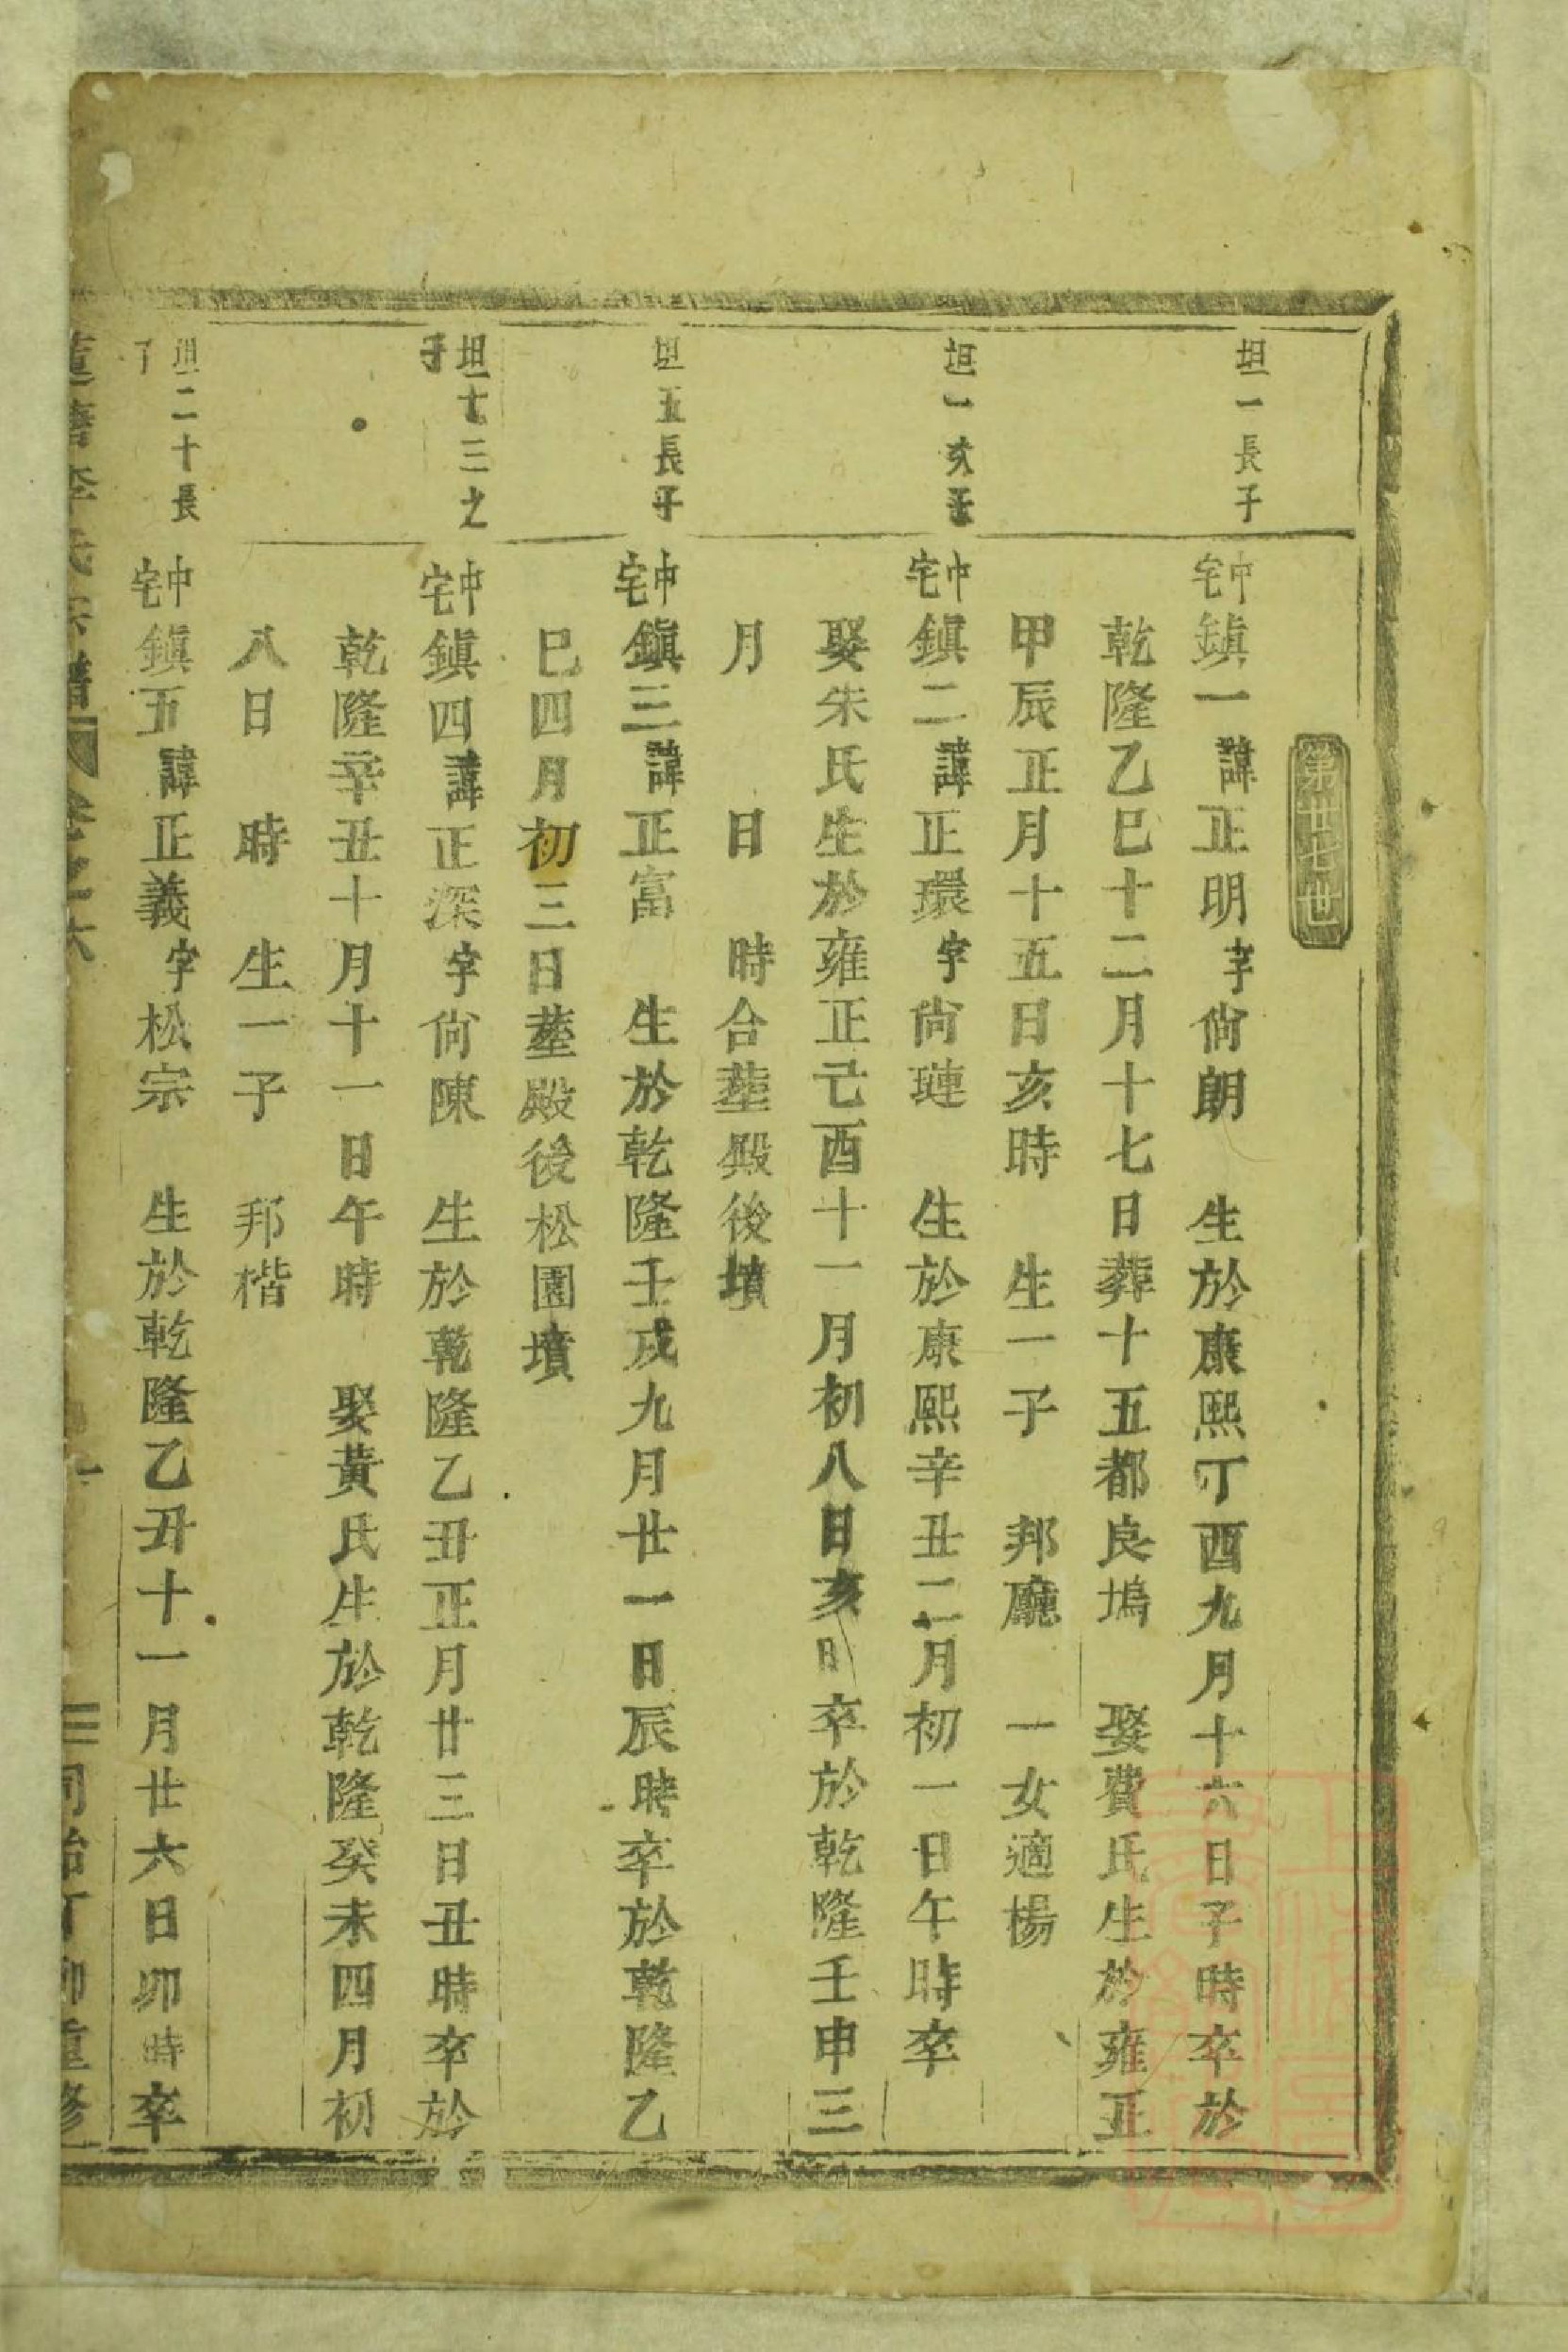 第卅七世
坦一長子
中宅鎮一諱正明字尙朗　生於康熙丁酉九月十六日子時卒於
乾隆乙巳十二月十七日葬十五都良塢　娶費氏生於雍正
甲辰正月十五日亥時　生一子　邦廳　一女適楊
坦一次子
中宅鎮二諱正環字尙璉　生於康熙辛丑二月初一日午時卒
娶朱氏生於雍正己酉十一月初八日亥時卒於乾隆壬申三
月　日　時合塟殿後墳
坦五長子
中宅鎮三諱正富　生於乾隆壬戌九月廿一日辰時卒於乾隆乙
巳四月初三日塟殿後松園墳
坦十三之子
中宅鎮四諱正深字尙陳　生於乾隆乙丑正月廿三日丑時卒於
乾隆辛丑十月十一日午時　娶黃氏生於乾隆癸未四月初
八日　時　生一子　邦楷
坦二十長子
中宅鎮五諱正義字松宗　生於乾隆乙丑十一月廿六日卯時卒
李氏宗譜　卷之六　一　同治丁卯重修